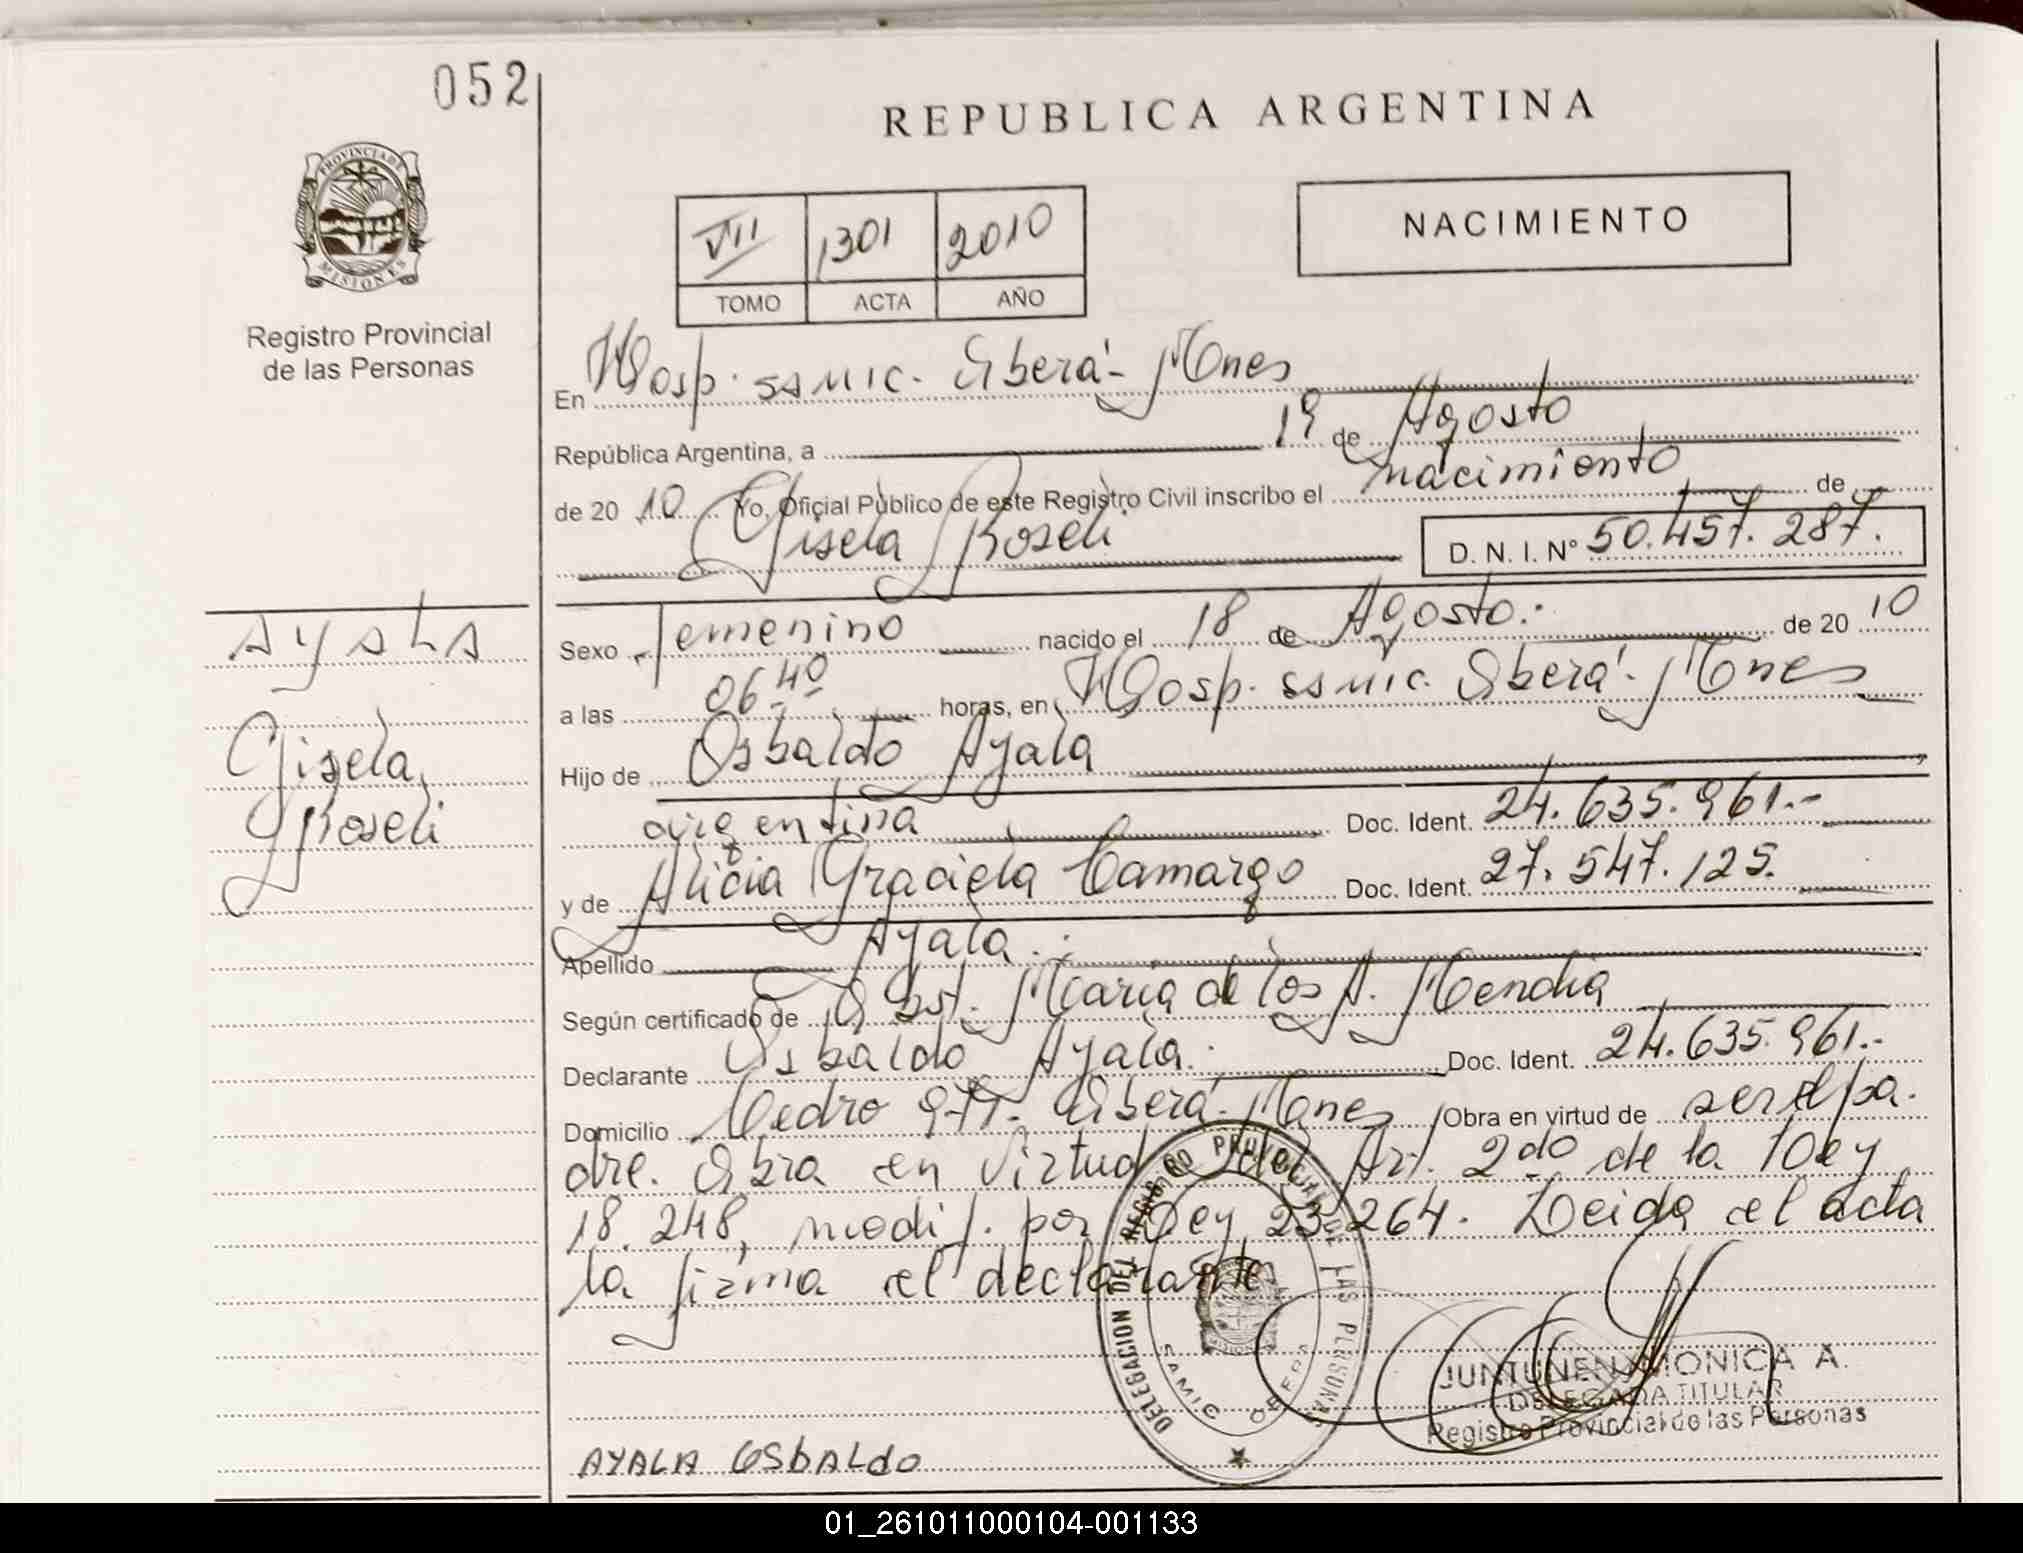 052
REPUBLICA ARGENTINA
PROVINCIA DE MISIONES
Registro Provincial
de las Personas
VII 1301 2010
TOMO ACTA AÑO
NACIMIENTO
En Hosp. SAMIC. Oberá - Mnes
República Argentina, a 19 de Agosto
de 2010 Yo, Oficial Público de este Registro Civil inscribo el nacimiento de
Gisela Roseli D. N. I. Nº 50.457.287.
AYALA
Gisela
Roseli
Sexo femenino nacido el 18 de Agosto. de 2010
a las 06 40 horas, en Hosp. SAMIC. Oberá - Mnes
Hijo de Osbaldo Ayala
argentina Doc. Ident. 24.635.961.-
y de Alicia Graciela Camargo Doc. Ident. 27.547.125.
Apellido Ayala.
Según certificado de Obst. María de los A. Mendia
Declarante Osbaldo Ayala. Doc. Ident. 24.635.961.-
Domicilio Cedro Oberá - Mnes Obra en virtud de ser el pa.
dre. Obra en virtud del Art. 2do de la Ley
18.248, modif. por Ley 23.264. Leida el acta
la firma el declarante
DELEGACION DEL REGISTRO PROVINCIAL DE LAS PERSONAS
SAMIC OBERA
JUNTUNEN MONICA A.
DELEGADA TITULAR
Registro Provincial de las Personas
AYALA OSbALdO
01_261011000104-001133